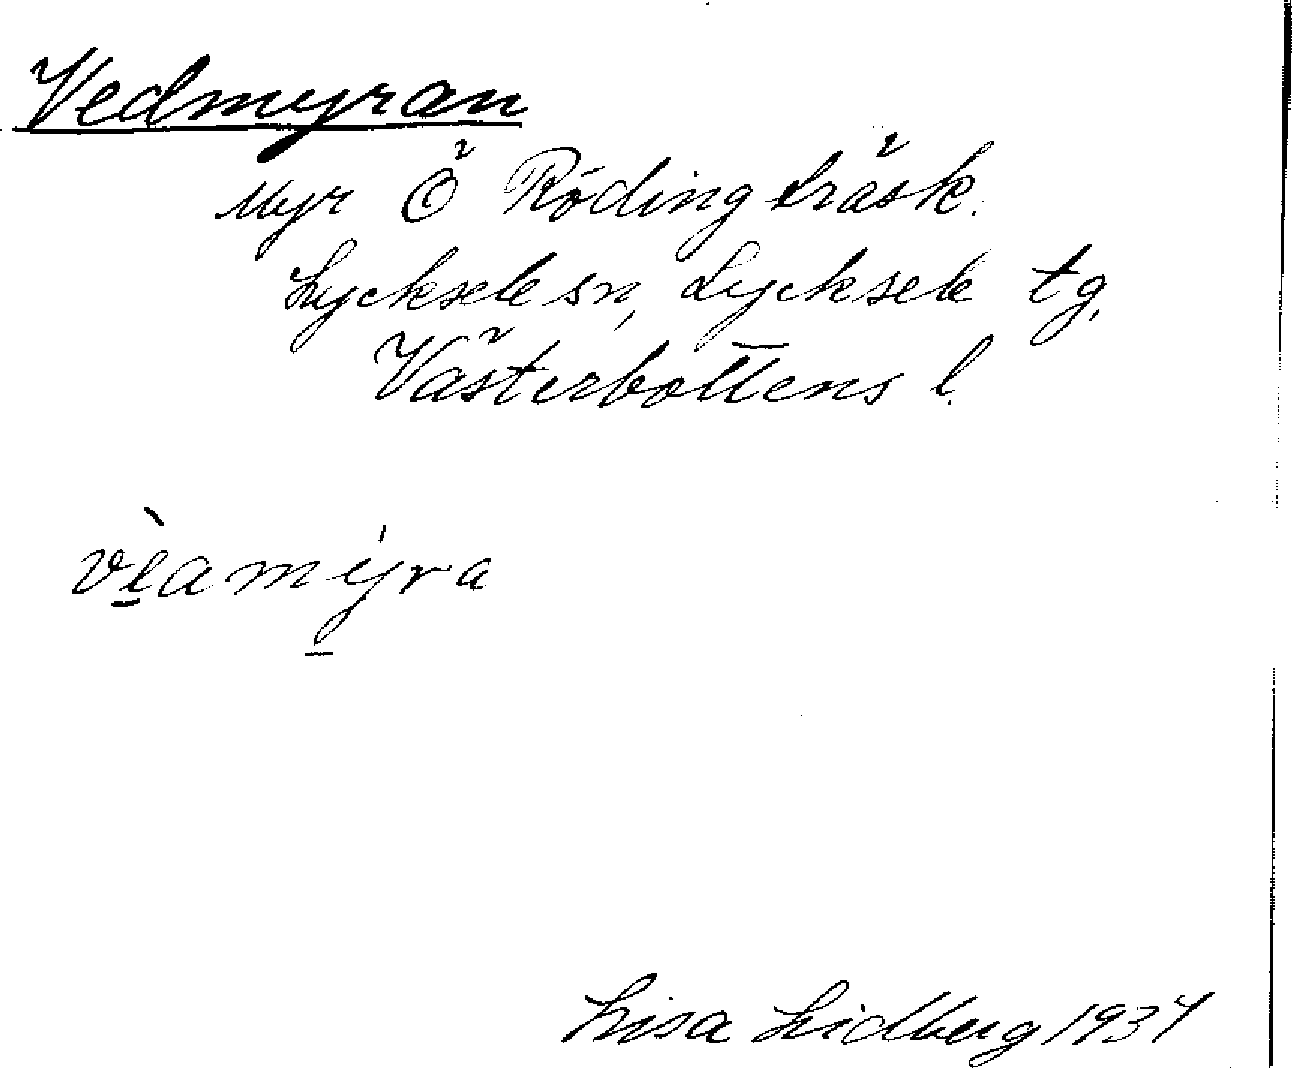 Vedmyran
Myr Ö Rödingträsk.
Lycksele sn, Lycksele tg,
Västerbottens l.
vèamýra
Lisa Lidberg 1934